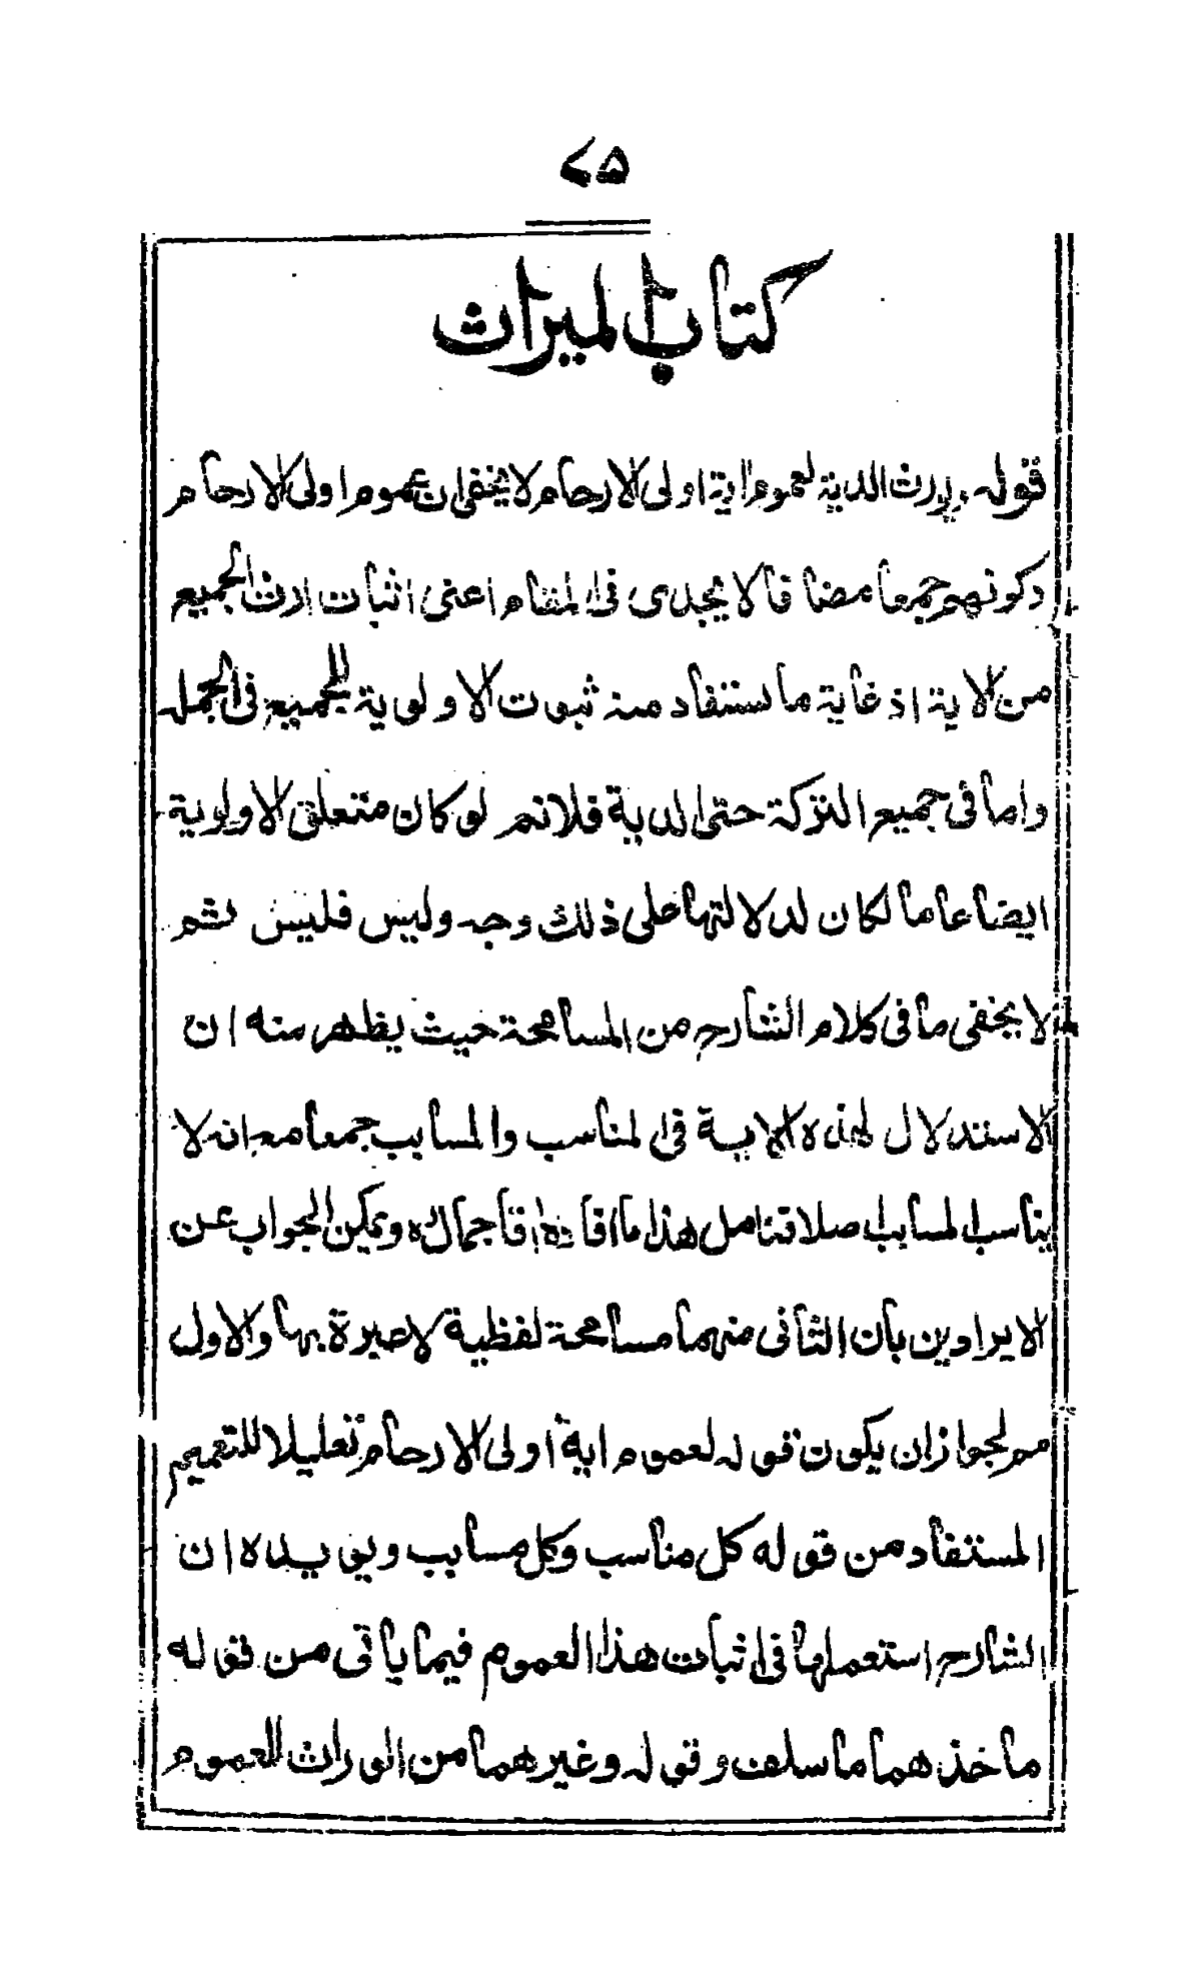 ٧٥
كتاب الميراث
قوله ويرث الدية لعموم اية اولى الارحام لا يخفى ان عموم اولى الارحام
وكونهم جمعا مضافا لا يجدى فى المقام اعنى اثبات ارث الجميع
من الاية اذ غاية ما يستفاد منه ثبوت الاولوية للجميع فى الجمله
واما فى جميع التركة حتى الدية فلا نعم لو كان متعلق الاولوية
ايضا عاما لكان لدلالتها على ذلك وجه وليس فليس ثم
لا يخفى ما فى كلام الشارح من المسامحة حيث يظهر منه ان
الاستدلال لهذه الاية فى المناسب والمسابب جمعا مع انه لا
يناسب المسابب اصلا فتامل هذا ما افاده اقا جمال ره ويمكن الجواب عن
الايرادين بان الثانى منهما مسامحة لفظية لا عبرة بها والاول
مم لجواز ان يكون قوله لعموم اية اولى الارحام تعليلا للتعميم
المستفاد من قوله كل مناسب وكل مسابب ويويده ان
الشارح استعملها فى اثبات هذا العموم فيما ياتى من قوله
ماخذهما ما سلف وقوله وغيرهما من الوراث للعموم